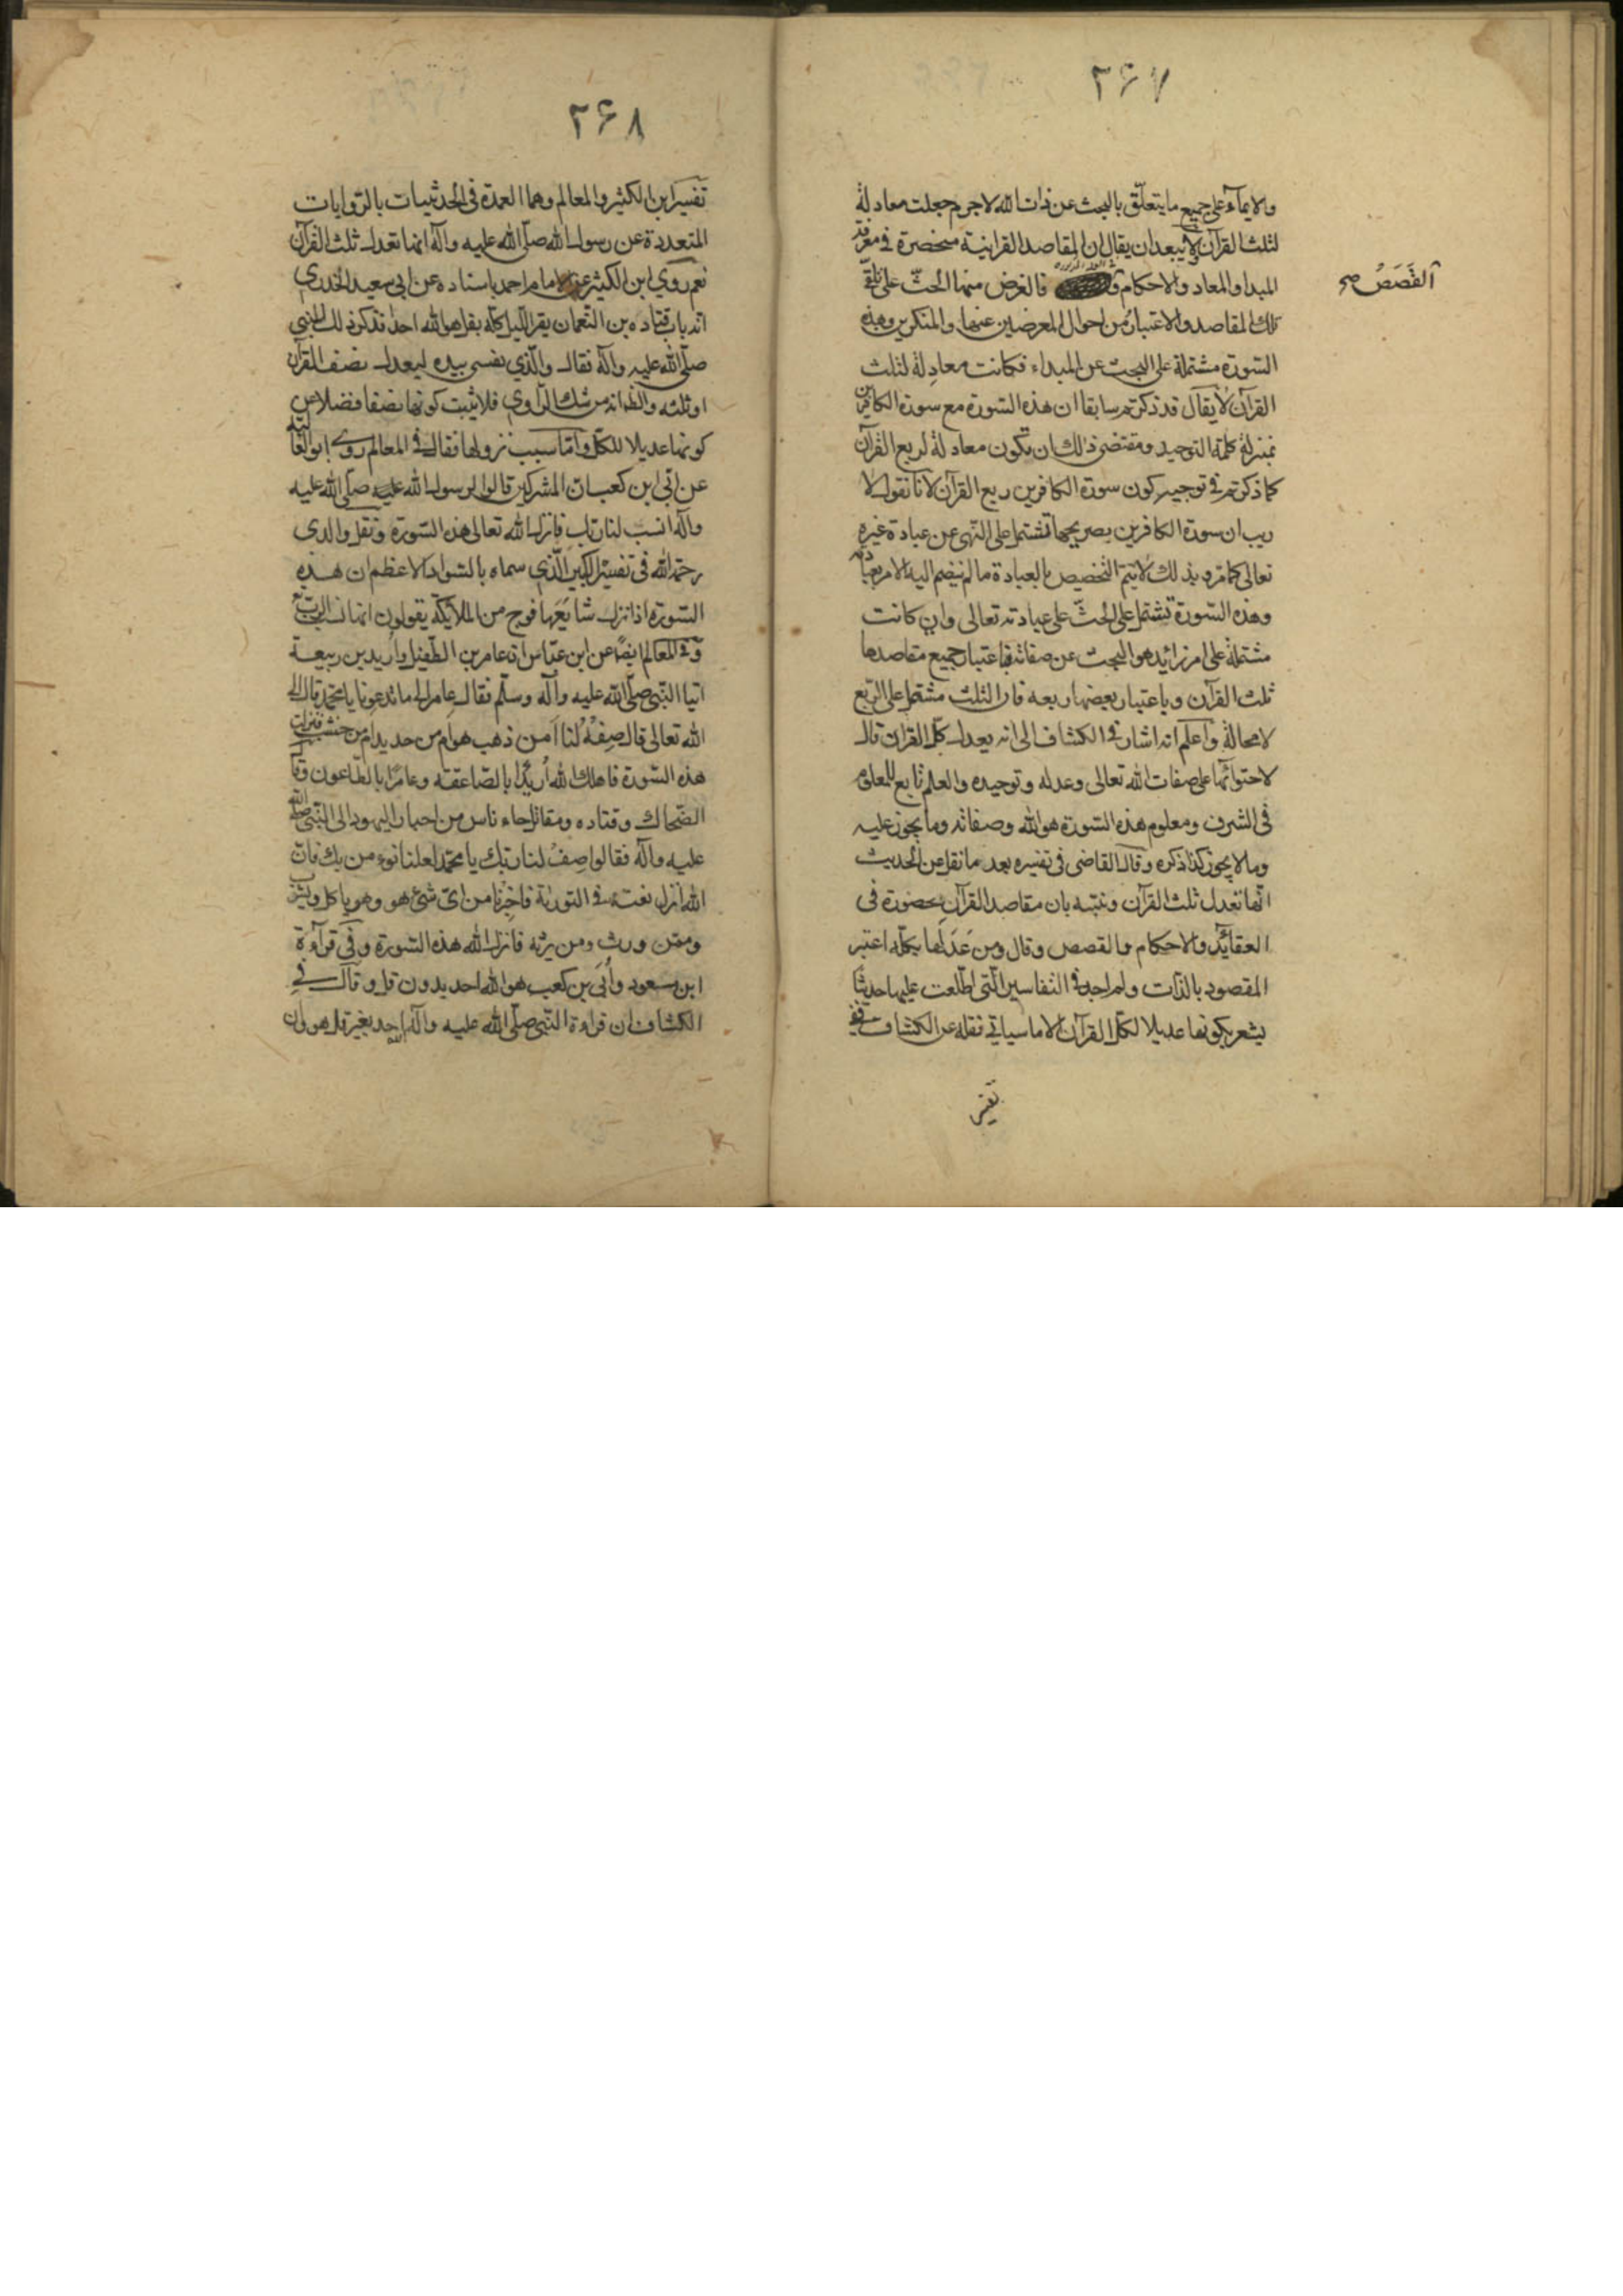 ٢۶٧
والايماء على جميع ما يتعلّق بالبحث عن ذات الله لاجرم جعلت معادلة
لثلث القرآن ولا يبعد ان يقال ان المقاصد القرانية منحصرة في معرفة
المبدا والمعاد والاحكام فالغرض منها الحثّ على تلقّي
القَصَصُ صح
تلك المقاصد والاعتبار من احوال المعرضين عنها والمنكرين وهذه
السّورة مشتملة على البحث عن المبداء فكانت معادِلة لثلث
القرآن لا يقال قد ذكرتم سابقا ان هذه السّورة مع سورة الكافرين
بمنزلة كلمة التوحيد ومقتضى ذلك ان تكون معادلة لربع القرآن
كما ذكرتم في توجيه كون سورة الكافرين ربع القرآن لانا نقول لا
ريب ان سورة الكافرين بصريحها تشتمل على النّهى عن عبادة غيره
تعالى كما مرّ وبذلك لا يتمّ التخصيص بالعبادة ما لم ينضم اليه الامر بعبادته
وهذه السّورة تشتمل على الحثّ على عبادته تعالى وان كانت
مشتملة على امر زائد هو البحث عن صفاته فباعتبار جميع مقاصدها
ثلث القرآن وباعتبار بعضها ربعه فان الثلث مشتمل على الرّبع
لا محالة واعلم انه اشار في الكشاف الى انه يعدل كلّ القران قال
لاحتوائها على صفات الله تعالى وعدله وتوحيده والعلم تابع للمعلوم
فى الشرف ومعلوم هذه السّورة هو الله وصفاته وما يجوز عليه
وما لا يجوز كذا ذكره وقال القاضى في تفسيره بعد ما نقل عن الحديث
انّها تعدل ثلث القرآن ونبّه بان مقاصد القرآن محصورة فى
العقائد والاحكام والقصص وقال ومن عَدَلَها بكلّه اعتبر
المقصود بالذّات ولم اجد في التفاسير الّتى اطّلعت عليها حديثا
يشعر بكونها عديلا لكلّ القرآن الا ما سياتي نقله عن الكشاف
تفسير
٢۶٨
تفسير ابن الكثير والمعالم وهما العمدة فى الحديثيات بالرّوايات
المتعددة عن رسول الله صلّى الله عليه وآله انها تعدل ثلث القرآن
نعم روي ابن الكثير عن الامام احمد باسناده عن ابى سعيد الخدري
انه بات قتاده بن النّعمان يقرا اللّيل كلّه بقل هو الله احد فذكر ذلك للنّبي
صلّى الله عليه وآله فقال والّذي نفسى بيده ليعدل نصف القرآن
او ثلثه والظ انه من شك الرّاوي فلا يثبت كونها نصفا فضلا عن
كونها عديلا للكلّ وامّا سبب نزولها فقال في المعالم روى ابو العالية
عن ابّى ابن كعب ان المشركين قالوا لرسول الله صلّى الله عليه
وآله انسب لنا ربّك فانزل الله تعالى هذه السّورة ونقل والدى
رحمه الله فى تفسيره الكبير الّذي سماه بالسّواد الاعظم ان هذه
السّورة اذا نزلت شايَعَها فوج من الملائكة يقولون انها نسب الرّب تع
وفي المعالم ايضًا عن ابن عبّاس ان عامر بن الطّفيل واربد بن ربيعة
اتيا النّبى صلّى الله عليه وآله وسلّم فقال عامر الى ما تدعونا يا محمّد قال الى
الله تعالى قال صِفهُ لنا اَمن ذهب هو ام من حديد ام من خشب فنزلت
هذه السّورة فاهلك الله اُربد بالصّاعقة وعامرًا بالطّاعون وقال
الضّحاك وقتاده ومقاتل جاء ناس من احبار اليهود الى النّبى صلّى الله
عليه وآله فقالوا صِفْ لنا ربّك يا محمّد لعلنا نؤمن بك فان
الله انزل نعته في التورية فاخبرنا من اىّ شئ هو وهو ياكل ويشرب
وممّن ورث ومن يرثه فانزل الله هذه السّورة وفي قراءة
ابن مسعود واُبىّ بن كعب هو الله احد بدون قل وقال في
الكشاف ان قراءة النّبى صلّى الله عليه وآله الله احد بغير قل هو وان